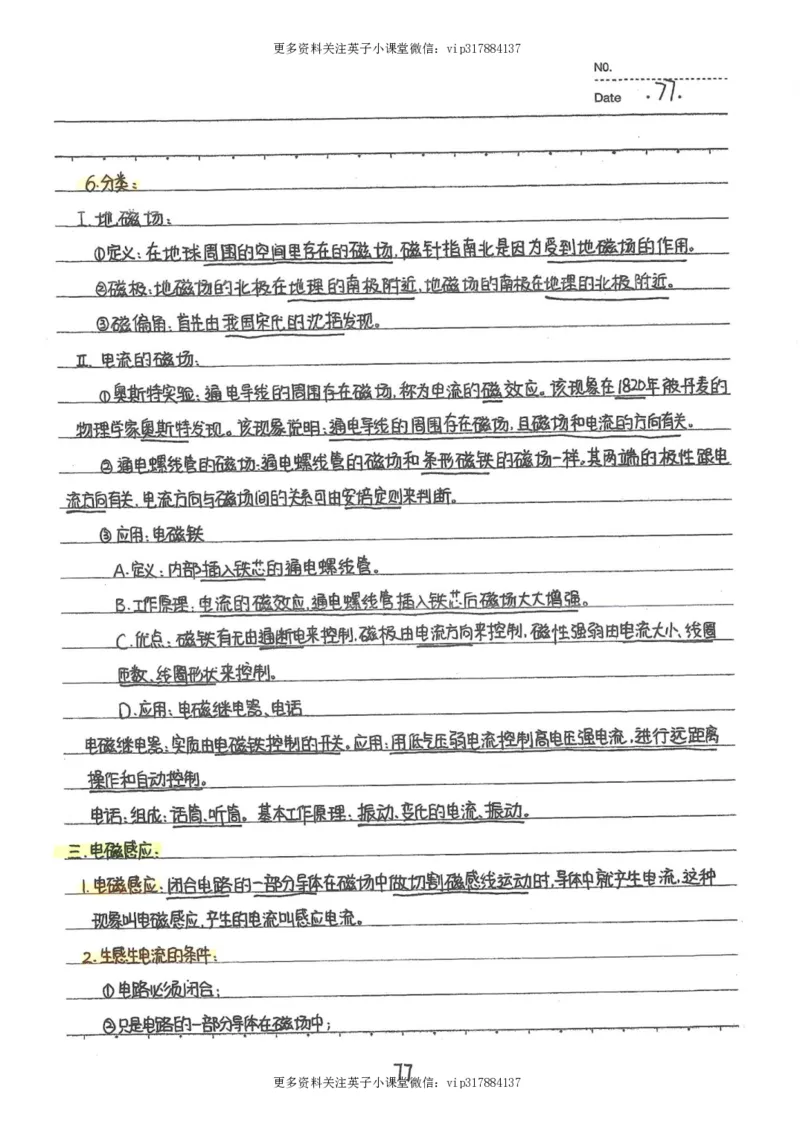 更多资料关注英子小课堂微信：vip317884137
NO.
Date .77.
6.分类：
Ⅰ.地磁场：
①定义：在地球周围的空间里存在的磁场，磁针指南北是因为受到地磁场的作用。
②磁极：地磁场的北极在地理的南极附近，地磁场的南极在地理的北极附近。
③磁偏角：首先由我国宋代的沈括发现。
Ⅱ.电流的磁场：
①奥斯特实验：通电导线的周围存在磁场，称为电流的磁效应。该现象在1820年被丹麦的
物理学家奥斯特发现。该现象说明：通电导线的周围存在磁场，且磁场和电流的方向有关。
②通电螺线管的磁场：通电螺线管的磁场和条形磁铁的磁场一样。其两端的极性跟电
流方向有关，电流方向与磁场间的关系可由安培定则来判断。
③应用：电磁铁
A.定义：内部插入铁芯的通电螺线管。
B.工作原理：电流的磁效应，通电螺线管插入铁芯后磁场大大增强。
C.优点：磁铁有无由通断电来控制，磁极由电流方向来控制，磁性强弱由电流大小、线圈
匝数、线圈形状来控制。
D.应用：电磁继电器、电话
电磁继电器：实质由电磁铁控制的开关。应用：用低气压弱电流控制高电压强电流，进行远距离
操作和自动控制。
电话：组成：话筒、听筒。基本工作原理：振动、变化的电流、振动。
三.电磁感应：
1.电磁感应：闭合电路的一部分导体在磁场中做切割磁感线运动时，导体中就产生电流，这种
现象叫电磁感应，产生的电流叫感应电流。
2.生感生电流的条件：
①电路必须闭合；
②只是电路的一部分导体在磁场中；
77
更多资料关注英子小课堂微信：vip317884137